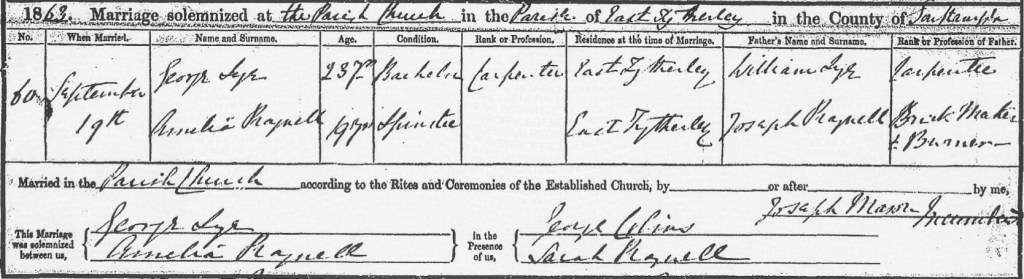 1863. Marriage solemnized at the Parish Church in the Parish of East Tytherley in the County of Southampton
No. When Married. Name and Surname. Age. Condition. Rank or Profession. Residence at the time of Marriage. Father's Name and Surname. Rank or Profession of Father.
60 September 19th
George Lye 23 yrs Bachelor Carpenter East Tytherley William Lye Carpenter
Amelia Pragnell 19 yrs Spinster East Tytherley Joseph Pragnell Brick Maker & Burner
Married in the Parish Church according to the Rites and Ceremonies of the Established Church, by or after by me,
Joseph Mason Incumbent
This Marriage was solemnized between us,
George Lye
Amelia Pragnell
in the Presence of us,
George
Sarah Pragnell